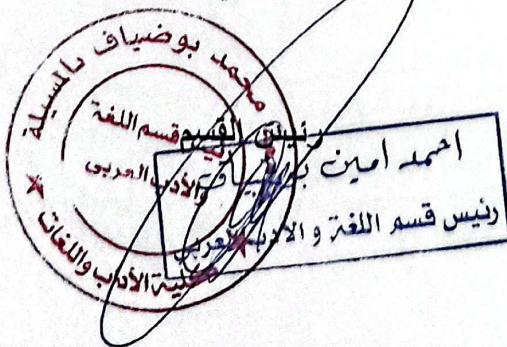 محمد بوضياف بالمسيلة
قسم اللغة
والأدب العربي
كلية الآداب واللغات
رئيس القسم
احمد امين
رئيس قسم اللغة و الادب العربي